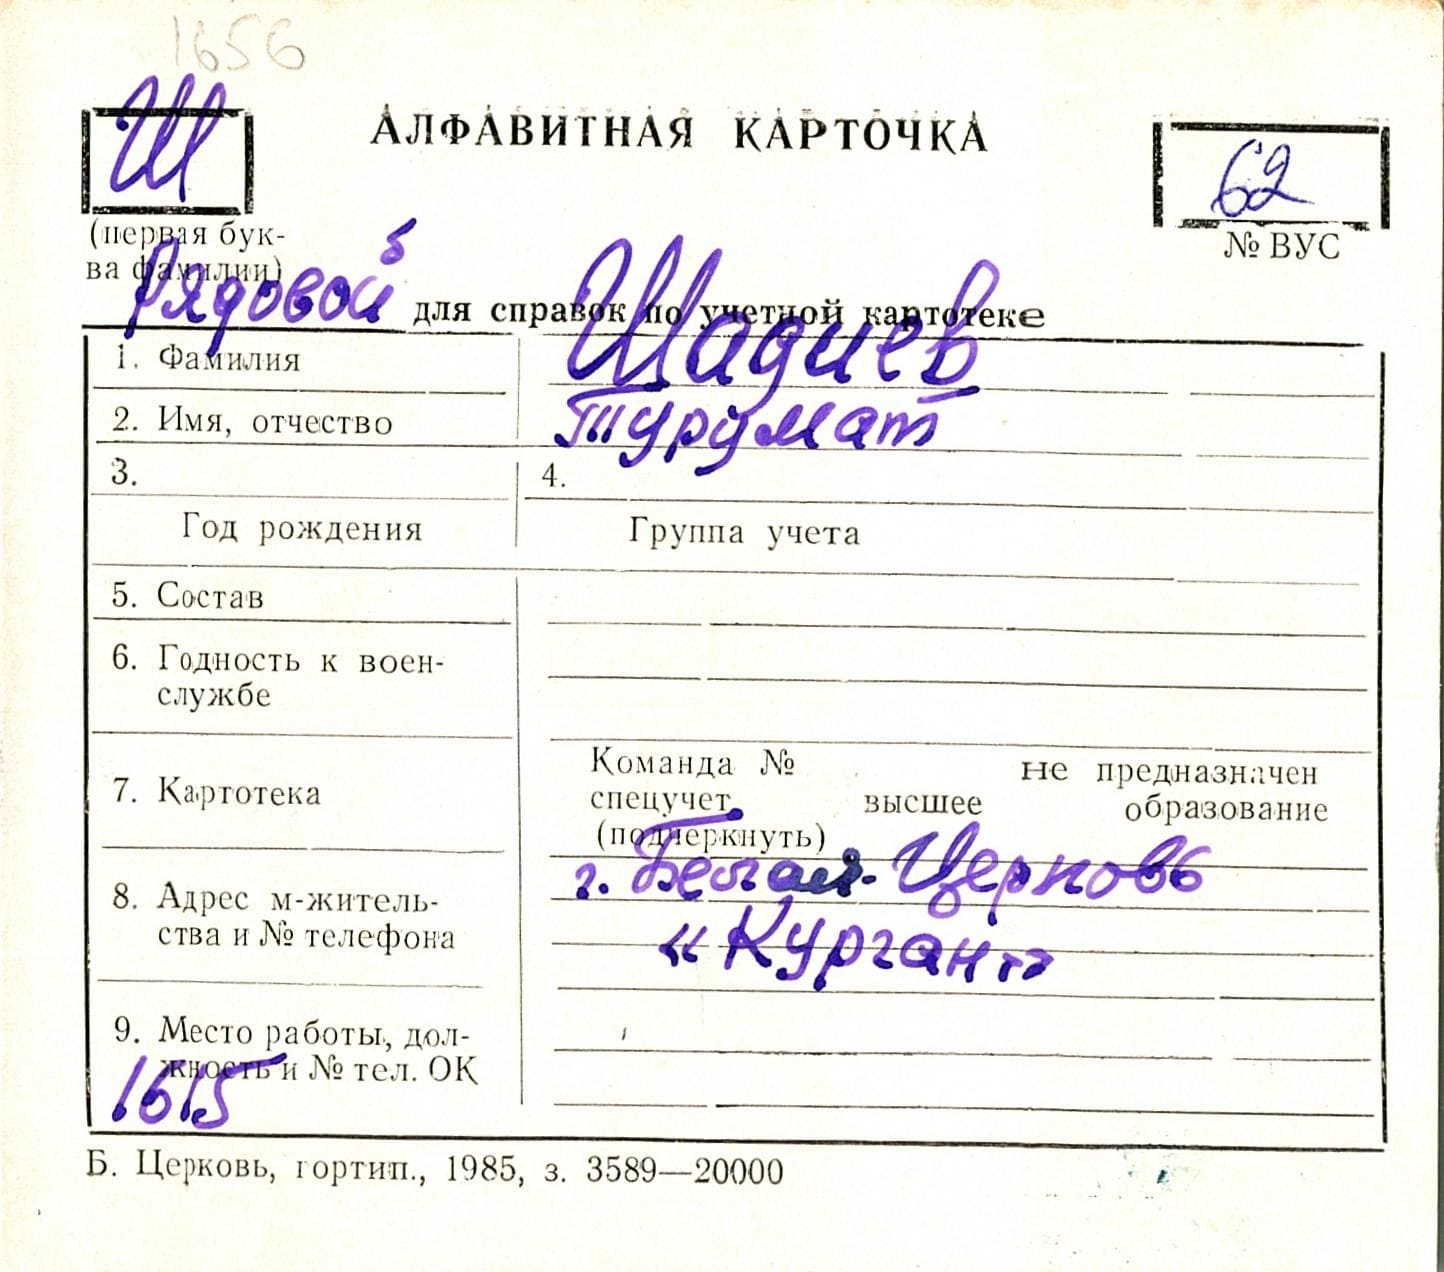 1656
Ш
АЛФАВИТНАЯ КАРТОЧКА
62
(первая бук-
ва фамилии)
№ ВУС
Рядовой
для справок по учетной картотеке
1. Фамилия
Шадиев
2. Имя, отчество
Турдмат
3.
4.
Год рождения
Группа учета
5. Состав
6. Годность к воен-
службе
7. Картотека
Команда №
не предназначен
спецучет высшее образование
(подчеркнуть)
8. Адрес м-житель-
ства и № телефона
г. Белая-Церковь
«Курган»
9. Место работы, дол-
жность и № тел. ОК
1615
Б. Церковь, гортип., 1985, з. 3589—20000